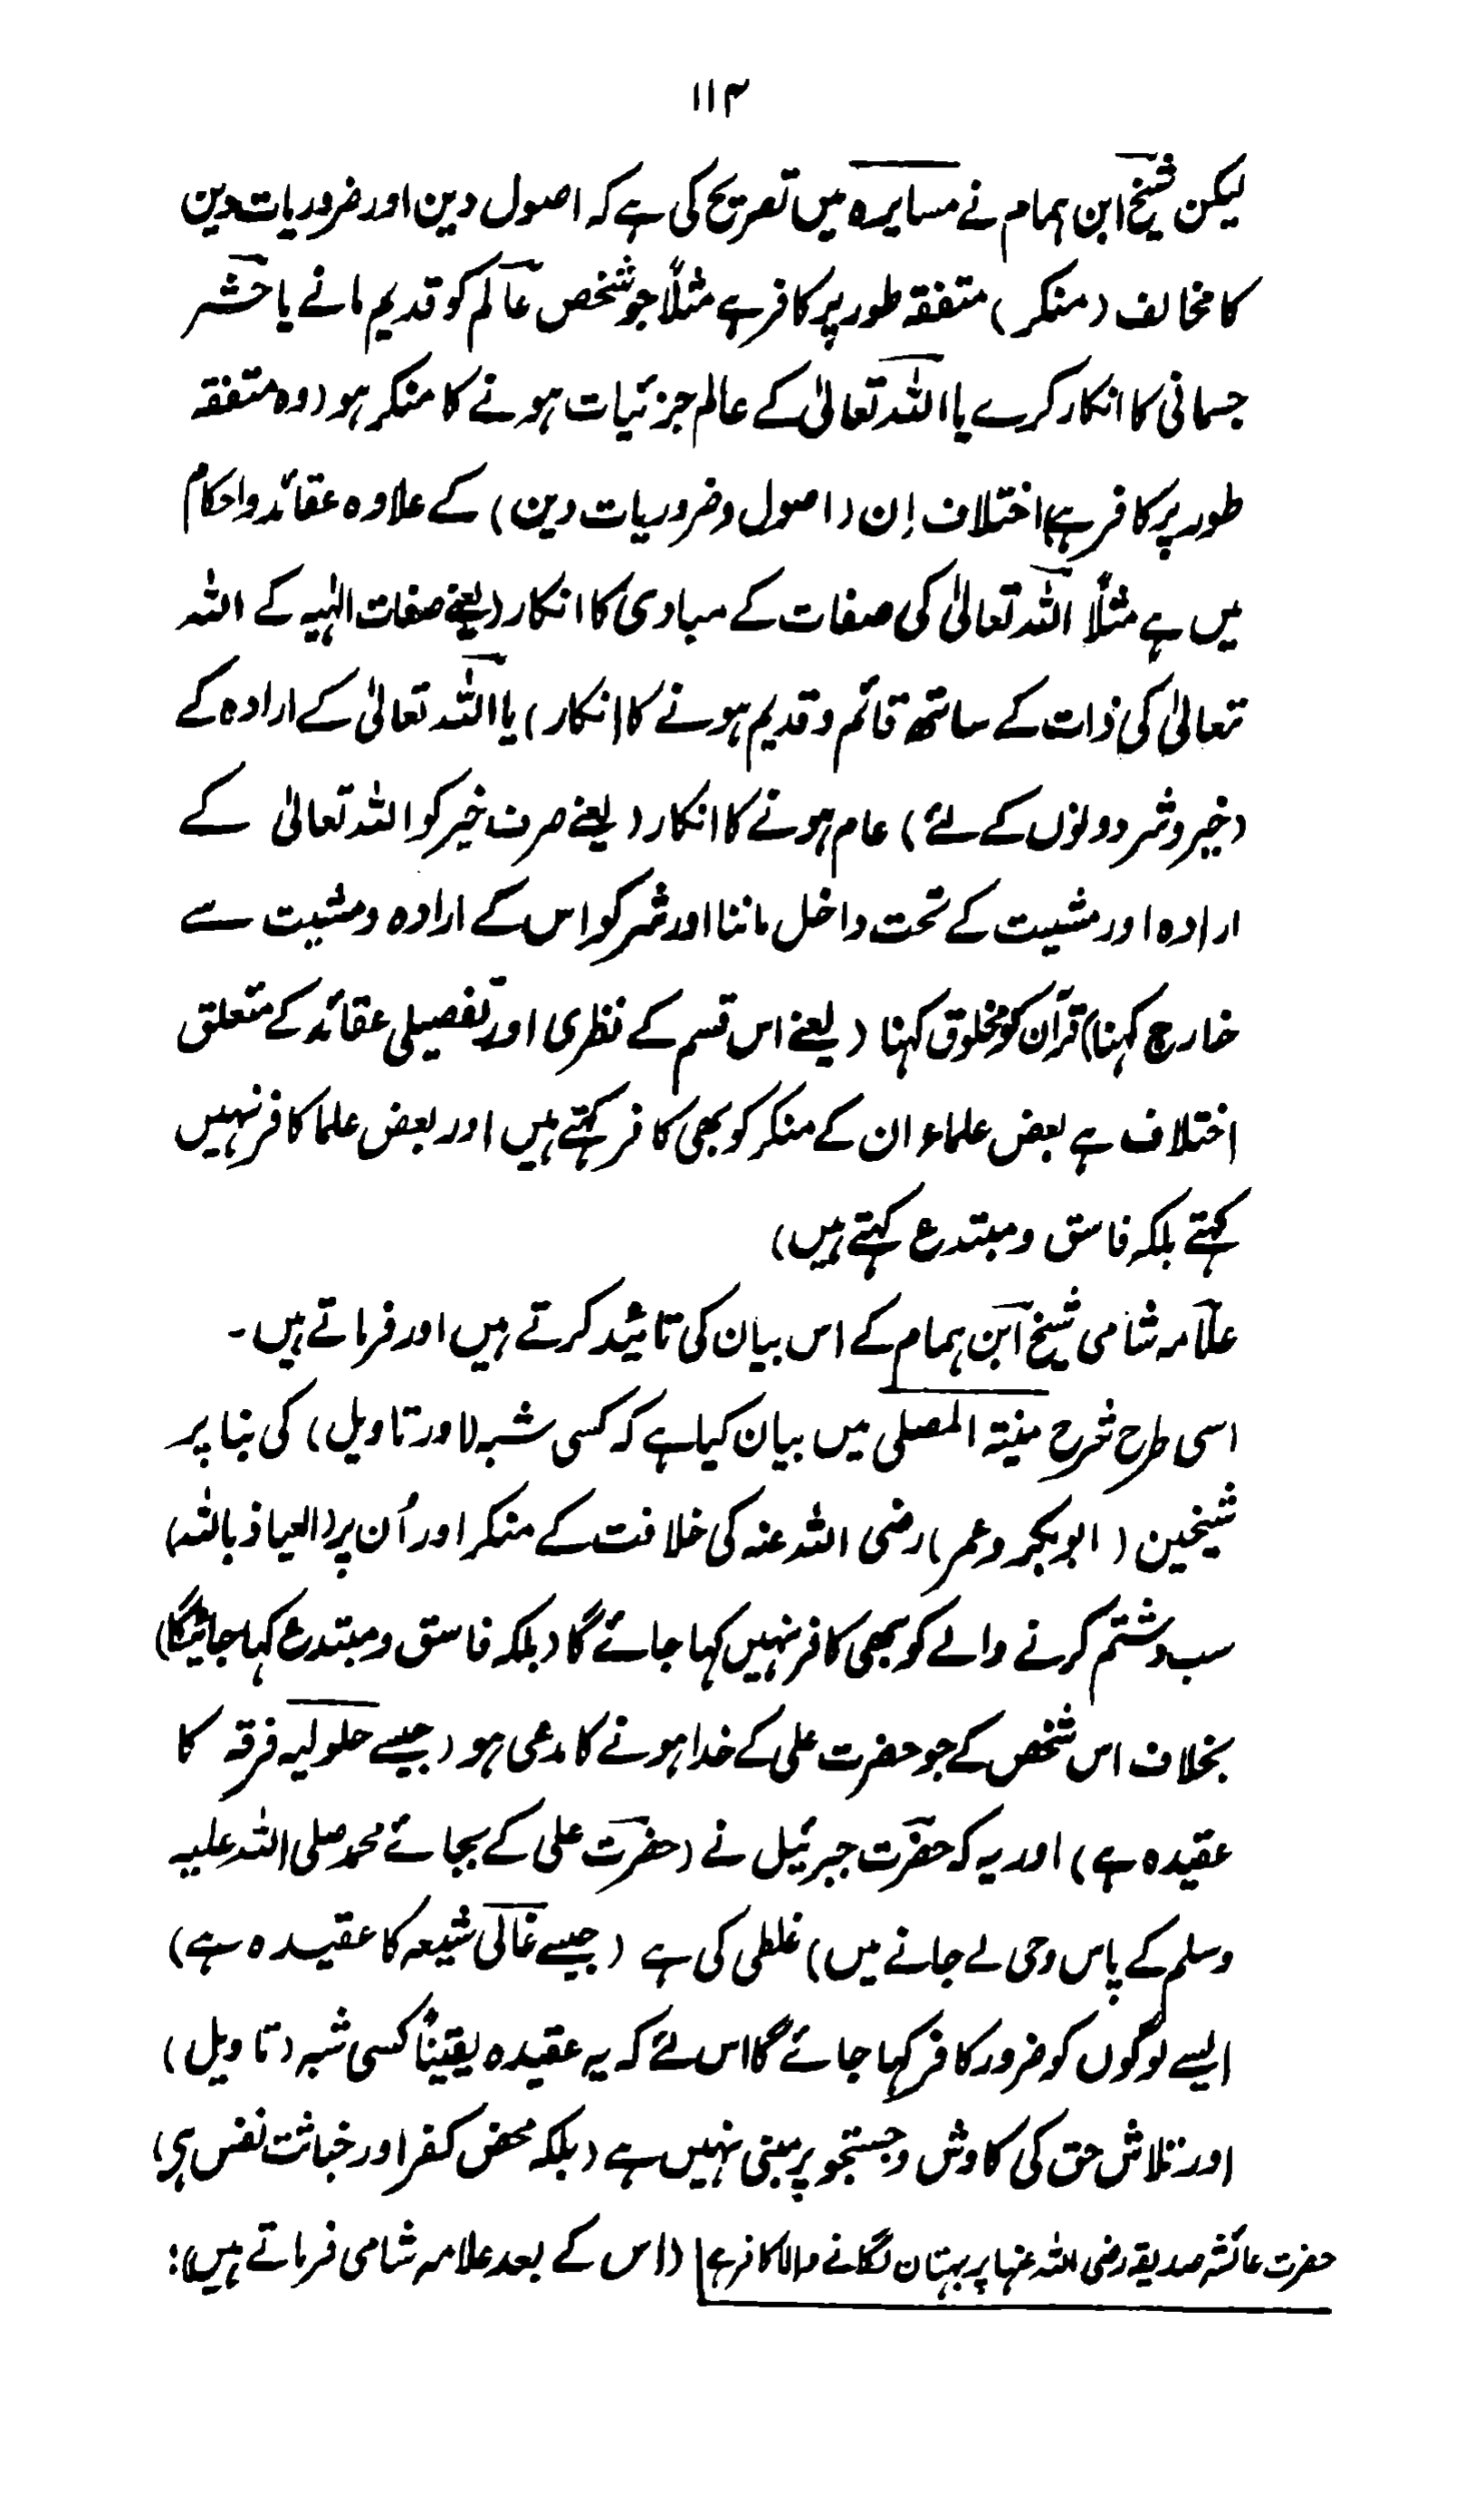 ۱۱۳
لیکن شیخ ابن ہمام نے مسایرہ میں تصریح کی ہے کہ اصول دین اور ضروریات دین
کا مخالف (منکر) متفقہ طور پر کافر ہے مثلاً جو شخص عالم کو قدیم مانے یا حشر
جسمانی کا انکار کرے یا اللہ تعالیٰ کے عالم جزئیات ہونے کا منکر ہو (وہ متفقہ
طور پر کافر ہے) اختلاف اِن (اصول و ضروریات دین) کے علاوہ عقائد و احکام
میں ہے مثلاً اللہ تعالیٰ کی صفات کے مبادی کا انکار (یعنے صفات الہٰیہ کے اللہ
تعالیٰ کی ذات کے ساتھ قائم و قدیم ہونے کا انکار) یا اللہ تعالیٰ کے ارادہ کے
(خیر و شر دونوں کے لئے) عام ہونے کا انکار (یعنے صرف خیر کو اللہ تعالیٰ کے
ارادہ اور مشیت کے تحت داخل ماننا اور شر کو اس کے ارادہ و مشیت سے
خارج کہنا) قرآن کو مخلوق کہنا (یعنے اس قسم کے نظری اور تفصیلی عقائد کے متعلق
اختلاف ہے بعض علماء ان کے منکر کو بھی کافر کہتے ہیں اور بعض علما کافر نہیں
کہتے بلکہ فاسق و مبتدع کہتے ہیں)
علامہ شامی شیخ ابن ہمام کے اس بیان کی تائید کرتے ہیں اور فرماتے ہیں۔
اسی طرح شرح منیۃ المصلی میں بیان کیا ہے کہ کسی شبہ (اور تاویل) کی بنا پر
شیخین (ابوبکر و عمر) رضی اللہ عنہ کی خلافت کے منکر اور اُن پر (العیاذ باللہ)
سب و شتم کرنے والے کو بھی کافر نہیں کہا جائے گا (بلکہ فاسق و مبتدع کہا جائیگا)
بخلاف اس شخص کے جو حضرت علی کے خدا ہونے کا مدعی ہو (جیسے حلولیہ فرقہ کا
عقیدہ ہے) اور یہ کہ حضرت جبرئیل نے (حضرت علی کے بجائے محمد صلی اللہ علیہ
وسلم کے پاس وحی لے جانے میں) غلطی کی ہے (جیسے غالی شیعہ کا عقیدہ ہے)
ایسے لوگوں کو ضرور کافر کہا جائے گا اس لئے کہ یہ عقیدہ یقیناً کسی شبہ (تاویل)
اور تلاش حق کی کاوش و جستجو پر مبنی نہیں ہے (بلکہ محض کفر اور خباثت نفس ہی)
حضرت عائشہ صدیقہ رضی اللہ عنہا پر بہتان لگانے والا کافر ہے (اس کے بعد علامہ شامی فرماتے ہیں):